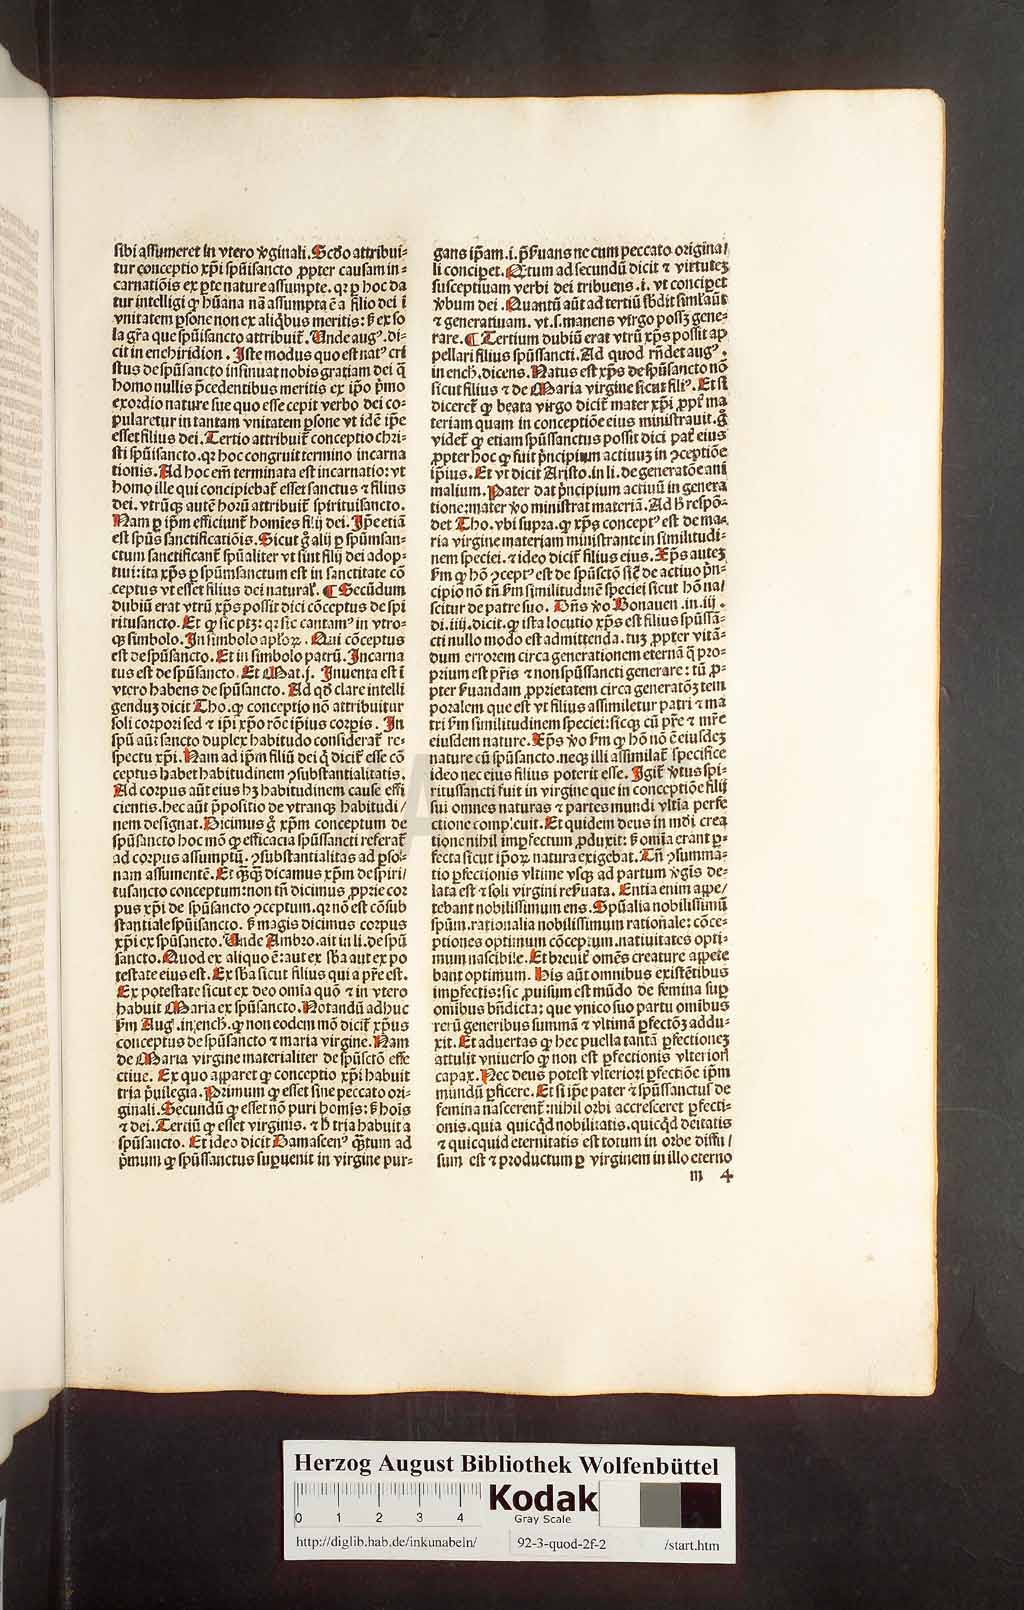 sibi assumeret in vtero v̓ginali. Scd̓o attribui⸗
tur conceptio xp̄i spūisancto ꝓpter causam in⸗
carnatiōis ex ꝑte nature assumpte. qꝛ ꝑ hoc da
tur intelligi ꝙ hūana nā assumpta ē a filio dei ī
vnitatem ꝑsone non ex aliq̇bus meritis: s̓ ex so
la gr̄a que spūisancto attribuit̃. Unde augꝰ. di⸗
cit in enchiridion. Iste modus quo est natꝰ cri
stus de spūsancto insinuat nobis gratiam dei q̄
homo nullis p̄cedentibus meritis ex ip̄o p̓mo
exordio nature sue quo esse cepit verbo dei co⸗
pularetur in tantam vnitatem ꝑsone vt idē ip̄e
esset filius dei. Tertio attribuit̃ conceptio chri⸗
sti spūisancto. qꝛ hoc congruit termino incarna
tionis. Ad hoc em̄ terminata est incarnatio: vt
homo ille qui concipiebat̃ esset sanctus ⁊ filius
dei. vtrūqꝫ autē horū attribuit̃ spirituisancto.
Nam ꝑ ip̄m efficiunt̃ homīes filij dei. Ip̄e etiā
est spūs sanctificatiōis. Sicut g̓ alij ꝑ spūmsan⸗
ctum sanctificant̃ spūaliter vt sint filij dei adop⸗
tiui: ita xp̄s ꝑ spūmsanctum est in sanctitate cō
ceptus vt esset filius dei natural̓. ¶ Secūdum
dubiū erat vtrū xp̄s possit dici cōceptus de spi
ritusancto. Et ꝙ sic ptꝫ: qꝛ sic cantamꝰ in vtro⸗
qꝫ simbolo. In simbolo apl̓oꝝ. Qui cōceptus
est de spūsancto. Et in simbolo patrū. Incarna
tus est de spūsancto. Et Mat. j. Inuenta est ī
vtero habens de spūsancto. Ad qd̓ clare intelli
genduꝫ dicit Tho. ꝙ conceptio nō attribuitur
soli corpori sed ⁊ ip̄i xp̄o rōe ip̄ius corpis. In
spū aūt sancto duplex habitudo considerat̃ re⸗
spectu xp̄i. Nam ad ip̄m filiū dei q̇ dicit̃ esse cō
ceptus habet habitudinem ↄsubstantialitatis.
Ad corpus aūt eius hꝫ habitudinem cause effi
cientis. hec aūt p̄positio de vtranqꝫ habitudi/
nem designat. Dicimus g̓ xp̄m conceptum de
spūsancto hoc mō ꝙ efficacia spūssancti referat̃
ad corpus assumptū. ↄsubstantialitas ad ꝑso⸗
nam assumentē. Et q̄qꝫ dicamus xp̄m de spiri/
tusancto conceptum: non tn̄ dicimus ꝓprie cor
pus xp̄i de spūsancto ↄceptum. qꝛ nō est cōsub
stantiale spūisancto. s̓ magis dicimus corpus
xp̄i ex spūsancto. Unde Ambro. ait in li. de spū
sancto. Quod ex aliquo ē: aut ex sb̓a aut ex po
testate eius est. Ex sb̓a sicut filius qui a pr̄e est.
Ex potestate sicut ex deo omīa quō ⁊ in vtero
habuit Maria ex spūsancto. Notandū adhuc
s̓m Aug. in ench. ꝙ non eodem mō dicit̃ xp̄us
conceptus de spūsancto ⁊ maria virgine. Nam
de Maria virgine materialiter de spūsctō effe
ctiue. Ex quo apparet ꝙ conceptio xp̄i habuit
tria p̓uilegia. Primum ꝙ esset sine peccato ori⸗
ginali. Secundū ꝙ esset nō puri homīs: s̓ hoīs
⁊ dei. Terciū ꝙ esset virginis. ⁊ h̓ tria habuit a
spūsancto. Et ideo dicit Damascenꝰ q̄tum ad
p̓mum ꝙ spūssanctus suꝑuenit in virgine pur⸗
gans ip̄am. i. p̄s̓uans ne cum peccato origina/
li conciꝑet. Q̄tum ad secundū dicit ⁊ virtuteꝫ
susceptiuam verbi dei tribuens. i. vt conciꝑet
v̓bum dei. Quantū aūt ad tertiū sb̓dit siml̓ aūt
⁊ generatiuam. vt. s. manens virgo possꝫ gene⸗
rare. ¶ Tertium dubiū erat vtrū xp̄s possit ap
pellari filius spūssancti. Ad quod rn̄det augꝰ.
in ench. dicens. Natus est xp̄s de spūsancto nō
sicut filius ⁊ de Maria virgine sicut filiꝰ. Et si
diceret̃ ꝙ beata virgo dicit̃ mater xp̄i ꝓpt̃ ma
teriam quam in conceptiōe eius ministrauit. g̓
videt̃ ꝙ etiam spūssanctus possit dici pat̃ eius
ꝓpter hoc ꝙ fuit p̓ncipium actiuuꝫ in ↄceptiōe
ip̄ius. Et vt dicit Aristo. in li. de generatōe ani
malium. Pater dat p̓ncipium actiuū in genera
tione: mater v̓o ministrat materiā. Ad h̓ respō⸗
det Tho. vbi supra. ꝙ xp̄s conceptꝰ est de ma⸗
ria virgine materiam ministrante in similitudi⸗
nem speciei. ⁊ ideo dicit̃ filius eius. Xp̄s auteꝫ
s̓m ꝙ hō ↄceptꝰ est de spūsctō sic̄ de actiuo p̓n⸗
cipio nō tn̄ s̓m similitudinē speciei sicut hō na/
scitur de patre suo. Dn̄s v̓o Bonauen. in. iij.
di. iiij. dicit. ꝙ ista locutio xp̄s est filius spūssā⸗
cti nullo modo est admittenda. tuꝫ ꝓpter vitā⸗
dum errorem circa generationem eternā q̄ pro⸗
prium est pr̄is ⁊ non spūssancti generare: tū ꝓ⸗
pter s̓uandam ꝓprietatem circa generatōꝫ tem
poralem que est vt filius assimiletur patri ⁊ ma
tri s̓m similitudinem speciei: sicqꝫ cū pr̄e ⁊ mr̄e
eiusdem nature. Xp̄s v̓o s̓m ꝙ hō nō ē eiusdeꝫ
nature cū spūsancto. neqꝫ illi assimilat̃ specifice
ideo nec eius filius poterit esse. Igit̃ v̓tus spi⸗
ritussancti fuit in virgine que in conceptiōe filij
sui omnes naturas ⁊ partes mundi vltīa perfe
ctione compleuit. Et quidem deus in mōi crea
tione nihil imꝑfectum ꝓduxit. s̓ omīa erant ꝑ⸗
fecta sicut ip̄oꝝ natura exigebat. Tn̄ ↄsumma⸗
tio ꝑfectionis vltime vsqꝫ ad partum v̓gis de⸗
lata est ⁊ soli virgini res̓uata. Entia enim appe/
tebant nobilissimum ens. Spūalia nobilissimū
spūm. rationalia nobilissimum rationale: cōce⸗
ptiones optimum cōceptum. natiuitates opti⸗
mum nascibile. Et breuit̃ omēs creature appete
bant optimum. His aūt omnibus existētibus
imꝑfectis: sic ꝓuisum est mūdo de femina suꝑ
omībus bn̄dicta: que vnico suo partu omībus
rerū generibus summā ⁊ vltimā ꝑfectōꝫ addu⸗
xit. Et aduertas ꝙ hec puella tantā ꝑfectioneꝫ
attulit vniuerso ꝙ non est ꝑfectionis vlterioris
capax. Nec deus potest vlteriori ꝑfectiōe ip̄m
mundū ꝑficere. Et si ip̄e pater ⁊ spūssanctus de
femina nascerent̃: nihil orbi accresceret ꝑfecti⸗
onis. quia quicqd̓ nobilitatis. quicqd̓ deitatis
⁊ quicquid eternitatis est totum in orbe diffu/
sum est ⁊ productum ꝑ virginem in illo eterno
m 4
Herzog August Bibliothek Wolfenbüttel
0 1 2 3 4
Kodak
Gray Scale
http://diglib.hab.de/inkunabeln/ 92-3-quod-2f-2 /start.htm